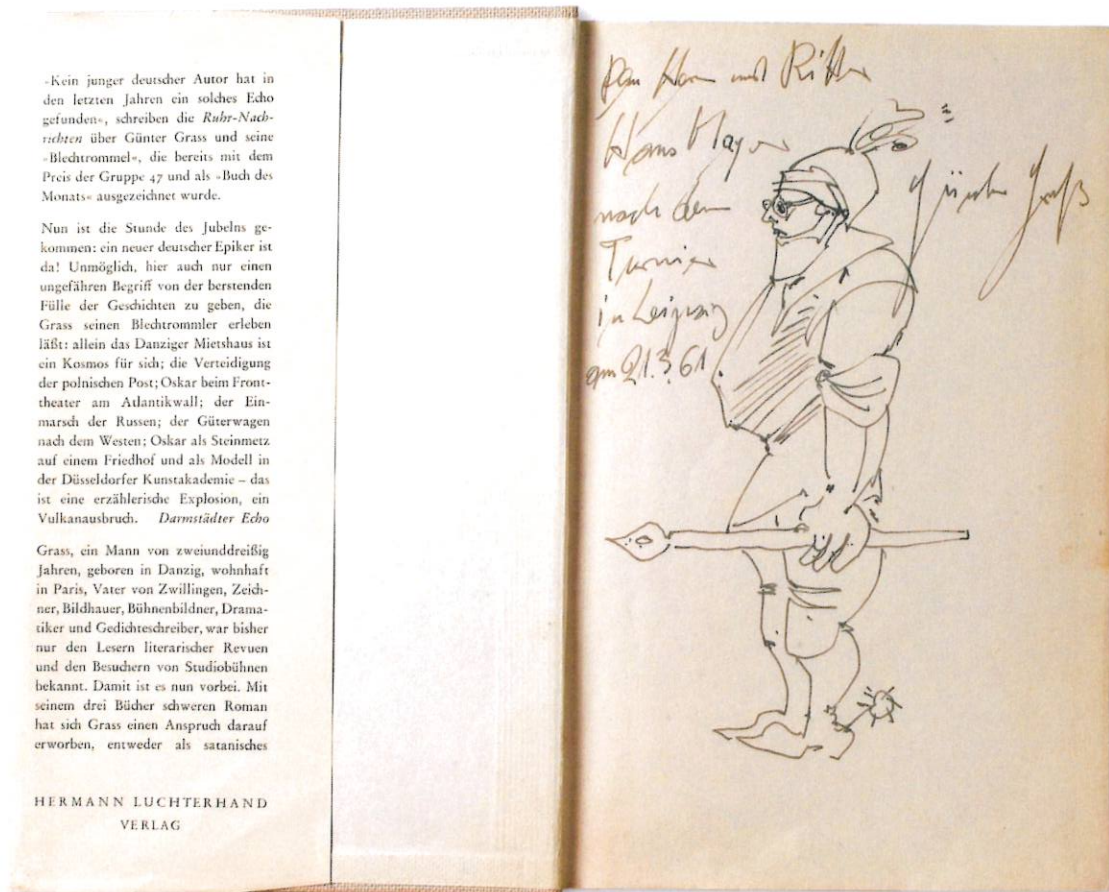 »Kein junger deutscher Autor hat in
den letzten Jahren ein solches Echo
gefunden«, schreiben die Ruhr-Nach-
richten über Günter Grass und seine
»Blechtrommel«, die bereits mit dem
Preis der Gruppe 47 und als »Buch des
Monats« ausgezeichnet wurde.
Nun ist die Stunde des Jubelns ge-
kommen: ein neuer deutscher Epiker ist
da! Unmöglich, hier auch nur einen
ungefähren Begriff von der berstenden
Fülle der Geschichten zu geben, die
Grass seinen Blechtrommler erleben
läßt: allein das Danziger Mietshaus ist
ein Kosmos für sich; die Verteidigung
der polnischen Post; Oskar beim Front-
theater am Atlantikwall; der Ein-
marsch der Russen; der Güterwagen
nach dem Westen; Oskar als Steinmetz
auf einem Friedhof und als Modell in
der Düsseldorfer Kunstakademie – das
ist eine erzählerische Explosion, ein
Vulkanausbruch. Darmstädter Echo
Grass, ein Mann von zweiunddreißig
Jahren, geboren in Danzig, wohnhaft
in Paris, Vater von Zwillingen, Zeich-
ner, Bildhauer, Bühnenbildner, Drama-
tiker und Gedichteschreiber, war bisher
nur den Lesern literarischer Revuen
und den Besuchern von Studiobühnen
bekannt. Damit ist es nun vorbei. Mit
seinem drei Bücher schweren Roman
hat sich Grass einen Anspruch darauf
erworben, entweder als satanisches
HERMANN LUCHTERHAND
VERLAG
Dem Herrn und Ritter
Hans Mayer
nach dem
Turnier
in Leipzig
am 21.3.61
Günter Graß